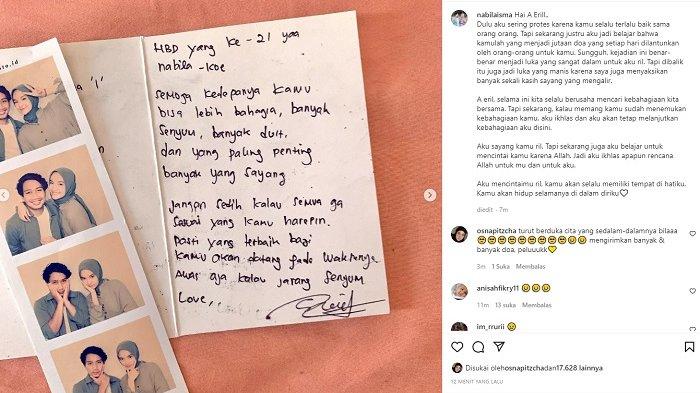 HBD yang ke-21 yaa
nabila-koe
semoga kedepanya kamu
bisa lebih bahagia, banyak
senyum, banyak duit,
dan yang paling penting
banyak yang sayang
jangan sedih kalau semua ga
sesuai yang kamu harepin.
pasti yang terbaik bagi
kamu akan datang pada waktunya
awas aja kalau jarang senyum
Love,
nabilaisma Hai A Erill..
Dulu aku sering protes karena kamu selalu terlalu baik sama
orang orang. Tapi sekarang justru aku jadi belajar bahwa
kamulah yang menjadi jutaan doa yang setiap hari dilantunkan
oleh orang-orang untuk kamu. Sungguh, kejadian ini benar-
benar menjadi luka yang sangat dalam untuk aku ril. Tapi dibalik
itu juga jadi luka yang manis karena saya juga menyaksikan
banyak sekali kasih sayang yang mengalir.
A eril, selama ini kita selalu berusaha mencari kebahagiaan kita
bersama. Tapi sekarang, kalau memang kamu sudah menemukan
kebahagiaan kamu, aku ikhlas dan aku akan tetap melanjutkan
kebahagiaan aku disini.
Aku sayang kamu ril. Tapi sekarang juga aku belajar untuk
mencintai kamu karena Allah. Jadi aku ikhlas apapun rencana
Allah untuk mu dan untuk aku.
Aku mencintaimu ril, kamu akan selalu memiliki tempat di hatiku.
Kamu akan hidup selamanya di dalam diriku🤍
diedit · 7m
osnapitzcha turut berduka cita yang sedalam-dalamnya bilaaa
mengirimkan banyak &
banyak doa, peluuukk
3m 1 Suka Membalas
anisahfikry11
11m 13 suka Membalas
im_rrurii
Disukai oleh osnapitzcha dan 17.628 lainnya
12 MENIT YANG LALU